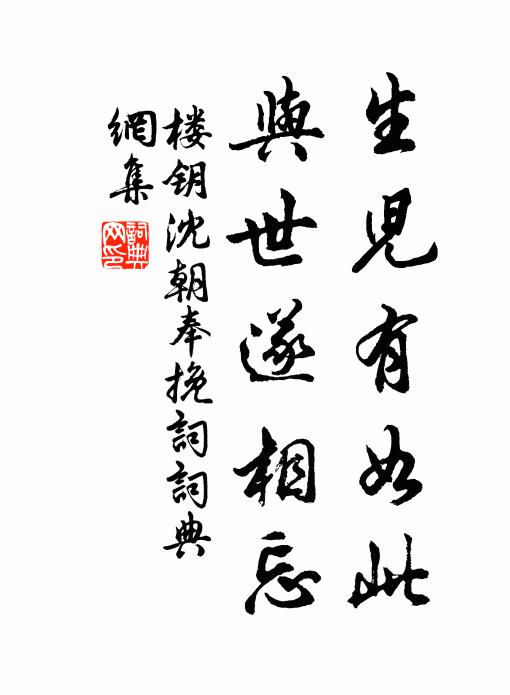 生兒有如此
與世遂相忘
楼钥沈朝奉挽詞詞典
網集
詞典
网印